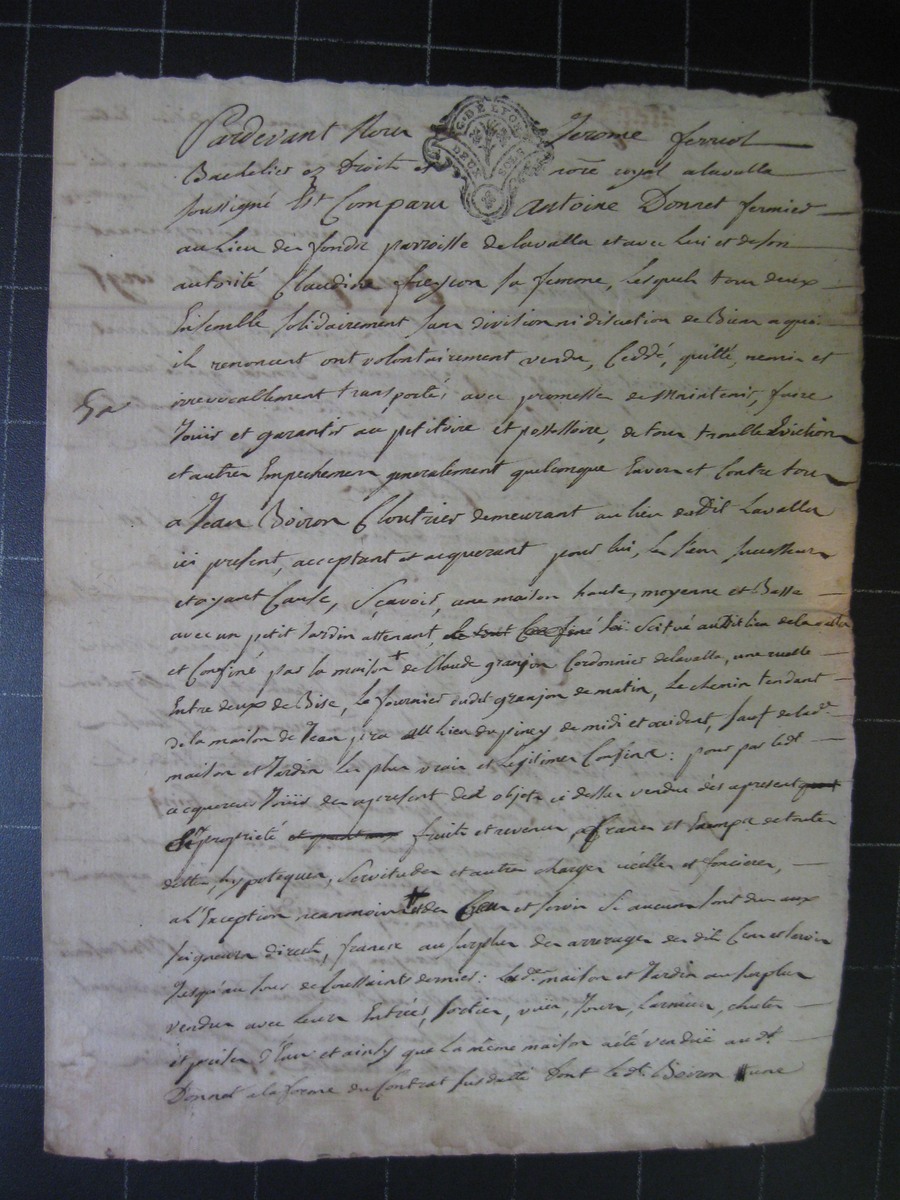 Pardevant Nous Jerome ferriol
G. DE LYON
DEUX SOLS
Bachelier ez Droits et nore royal a lavalla
soussigné Est Comparu Antoine Donnet fermier
au Lieu de fondu parroisse de lavalla et avec lui et de son
autorité Claudine freycon sa femme, lesquels tous deux
Ensemble solidairement sans division ni discution de Biens a quoi
ils renoncent ont volontairement vendu, Ceddé, quitté, remis et
irrevocablement transporté, avec promesse de Maintenir, faire
Joüir et garantir au petitoire et possessoire, de tous troubles Eviction
et autres Empechemens generalement quelconque Envers et Contre tous
a Jean Boiron Cloutrier demeurant au lieu dudit Lavalla
ici present, acceptant et acquerant pour lui, les siens successeurs
et ayant Cause, Sçavoir, une maison haute, moyenne et Basse
avec un petit Jardin attenant, le tout situé audit lieu de lavalla
et Confiné par la maison + de Claude granjon Cordonnier de lavalla, une ruelle
Entre deux de Bise, Le fournier dudit granjon de matin, Le chemin tendant
de la maison de Jean au Lieu du de midi et occident, sauf de lade
maison et Jardin les plus vrais et Legitimes Confins: pour par ledt
acquereur Joüir des apresent des objets ci dessus vendus dès apresent quant
propriété et quant aux fruits et revenus, francs et Exempts de toutes
dettes, hypoteques, Servitudes et autres charges réelles et foncieres,
a L'Exception neanmoins + des Cens et servis Si aucuns sont dus aux
seigneurs directs, francs au surplus des arrerages des dits Cens et servis
Jusqu'au Jour de Toussaints dernier: Lade maison et Jardin au surplus
vendus avec Leurs Entrées, sorties, vües, Jours, Larmiers, chutes
et prises d'Eau et ainsy que La même maison a été vendüe audt
Donnet a la forme du Contrat susdatté Dont ledt Boiron a une